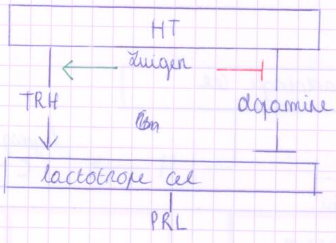 HT
Zuigen
TRH
dopamine
lactotrope cel
PRL